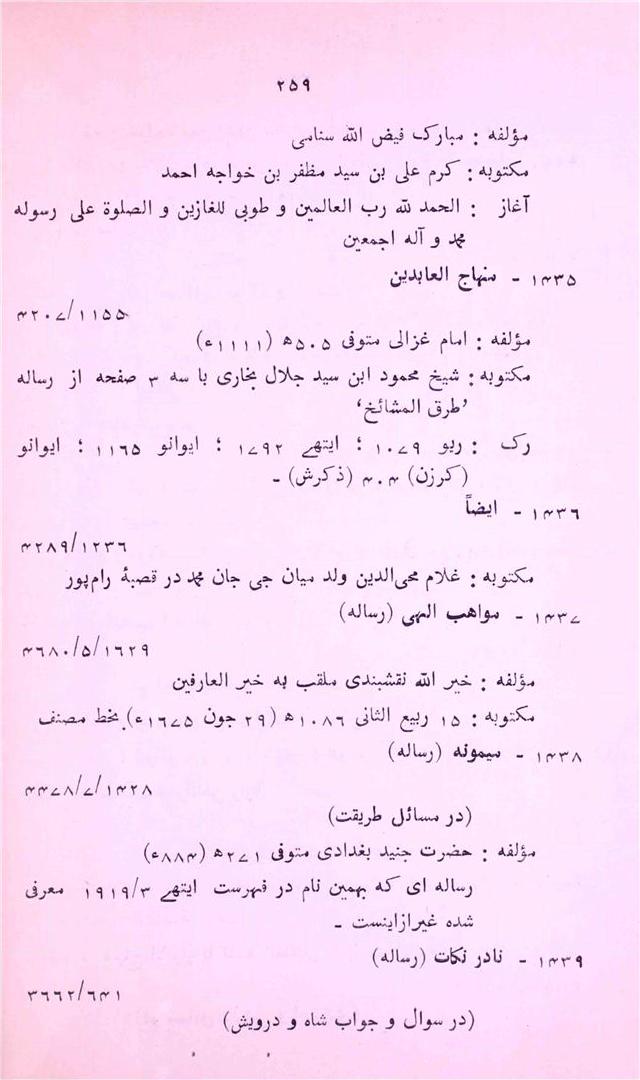 ۲۵۹
مؤلفه : مبارک فیض الله سناسی
مکتوبه : کرم علی بن سید مظفر بن خواجه احمد
آغاز : الحمد لله رب العالمین و طوبی للغازین و الصلوة علی رسوله
محمد و آله اجمعین
۱۴۳۵ - منهاج العابدین
۴۲۰۷/۱۱۵۵
مؤلفه : امام غزالی متوفی ۵۰۵ﻫ (۱۱۱۱ء)
مکتوبه : شیخ محمود ابن سید جلال بخاری با سه ۳ صفحه از رساله
’طرق المشائخ‘
رک : ریو ۱۰۷۹ ؛ ایتھے ۱۷۹۲ ؛ ایوانو ۱۱۶۵ ؛ ایوانو
(کرزن) ۴۰۴ (ذکرش) -
۱۴۳۶ - ایضاً
۴۲۸۹/۱۲۳۶
مکتوبه : غلام محی‌الدین ولد میان جی جان محمد در قصبهٔ رام‌پور
۱۴۳۷ - مواهب الهی (رساله)
۴۶۸۰/۵/۱۶۲۹
مؤلفه : خیر الله نقشبندی ملقب به خیر العارفین
مکتوبه : ۱۵ ربیع الثانی ۱۰۸۶ﻫ (۲۹ جون ۱۶۷۵ء) بخط مصنف
۱۴۳۸ - میمونه (رساله)
۴۴۷۸/۷/۱۴۲۸
(در مسائل طریقت)
مؤلفه : حضرت جنید بغدادی متوفی ۲۷۱ﻫ (۸۸۴ء)
رساله ای که بهمین نام در فهرست ایتھے ۱۹۱۹/۳ معرفی
شده غیرازاینست -
۱۴۳۹ - نادر نکات (رساله)
۳۶۶۲/۶۴۱
(در سوال و جواب شاه و درویش)